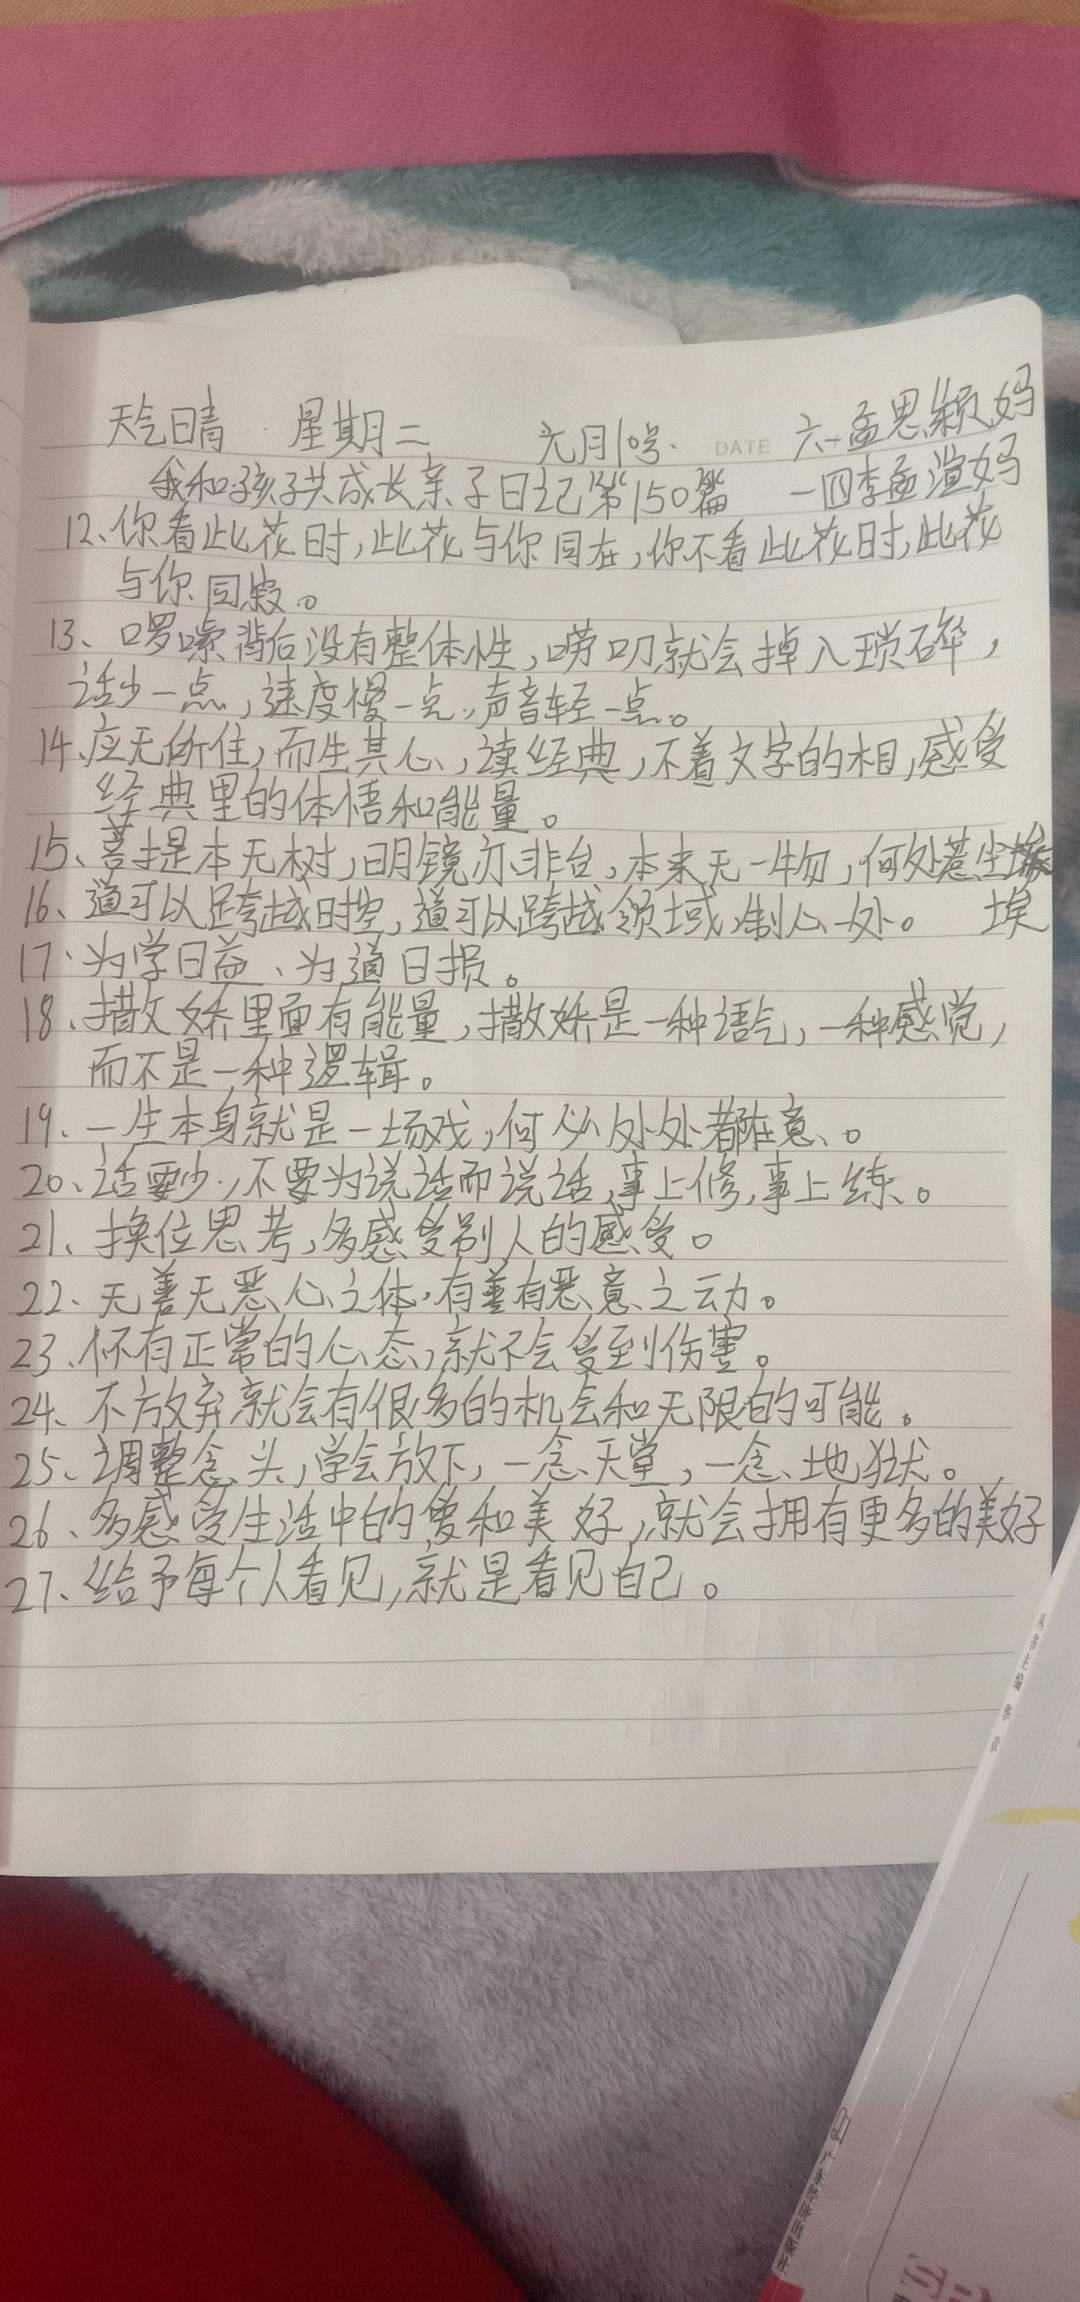 天气晴 星期二 元月10号. DATE 六一孟思颖妈
我和孩子共成长亲子日记第150篇 一四李孟渲妈
12、你看此花时,此花与你同在,你不看此花时,此花
与你同寂。
13、啰嗦背后没有整体性,唠叨就会掉入琐碎,
话少一点,速度慢一点,声音轻一点。
14、应无所住,而生其心,读经典,不着文字的相,感受
经典里的体悟和能量。
15、菩提本无树,明镜亦非台,本来无一物,何处惹尘
埃
16、道可以跨越时空,道可以跨越领域,制心一处。
17、为学日益、为道日损。
18、撒娇里面有能量,撒娇是一种语气,一种感觉,
而不是一种逻辑。
19、一生本身就是一场戏,何必处处都在意。
20、话要少,不要为说话而说话,事上修,事上练。
21、换位思考,多感受别人的感受。
22、无善无恶心之体,有善有恶意之动。
23、怀有正常的心态,就不会受到伤害。
24、不放弃就会有很多的机会和无限的可能。
25、调整念头,学会放下,一念天堂,一念地狱。
26、多感受生活中的爱和美好,就会拥有更多的美好
27、给予每个人看见,就是看见自己。